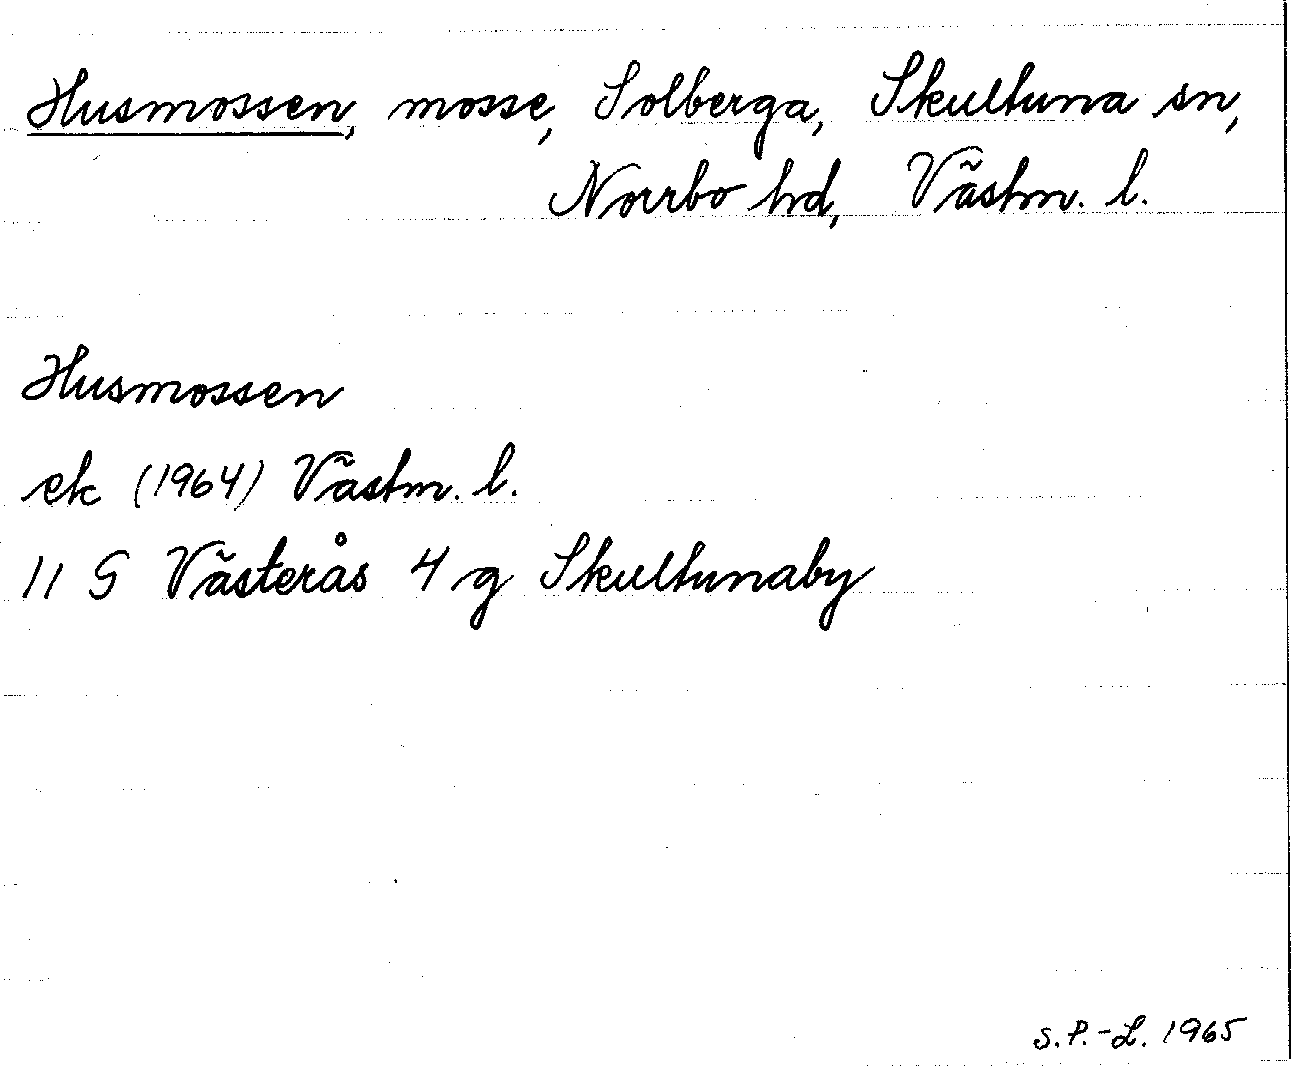 Husmossen, mosse, Solberga, Skultuna sn,
Norrbo hd, Västm. l.
Husmossen
ek (1964) Västm. l.
11 G Västerås 4 g Skultunaby
S. P.-L. 1965